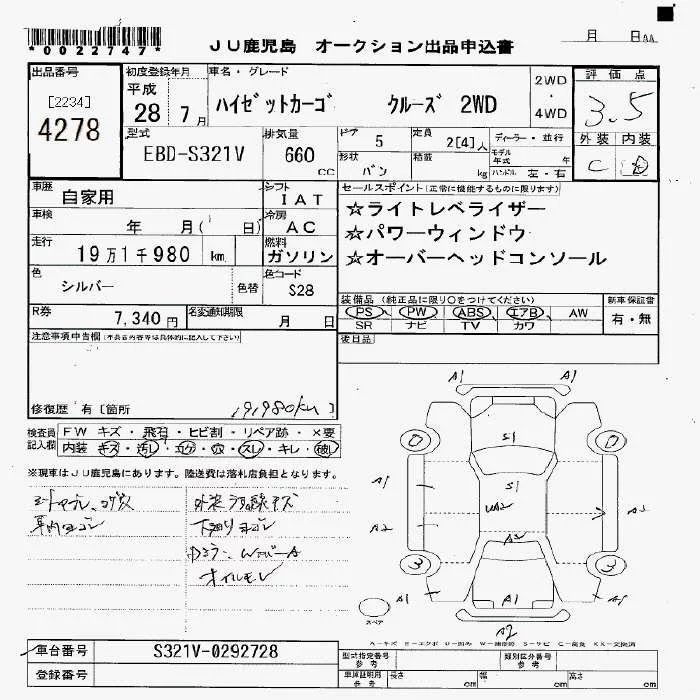 *0022747*
JU鹿児島 オークション出品申込書
月 日
出品番号 [2234] 4278
初度登録年月 平成 28年 7月
車名・グレード ハイゼットカーゴ クルーズ 2WD
2WD ・ 4WD
評価点 3.5
外装 内装
C
型式 EBD-S321V
排気量 660 CC
ドア 5
形状 バン
定員 2[4]人
積載 kg
ディーラー・並行
モデル年式 年
ハンドル 左・右
車歴 自家用
シフト IAT
車検 年 月( 日)
冷房 AC
走行 19万1千980 km
燃料 ガソリン
色 シルバー
色替
色コード S28
R券 7,340円
名変通知期限 月 日
セールスポイント(正常に機能するものに限ります)
☆ライトレベライザー
☆パワーウィンドウ
☆オーバーヘッドコンソール
装備品 (純正品に限り〇をつけてください)
PS PW ABS エアB AW
SR ナビ TV カワ
新車保証書 有・無
後日品
注意事項申告欄
修復歴 有[箇所
191980km]
検査員記入欄
FW キズ・飛石・ヒビ割・リペア跡・×要
内装 キズ・汚レ・コゲ・穴・スレ・キレ・破レ
※現車はJU鹿児島にあります。陸送費は落札店負担となります。
下廻りサビ
オイルモレ
A1 A1
0 0
S1
S1
A1
A2
3 3
A1 A1 A1
A2
スペア
車台番号 S321V-0292728
登録番号
型式指定番号 参考
類別区分番号 参考
車庫証明用 参考 長さ cm 幅 cm 高さ cm